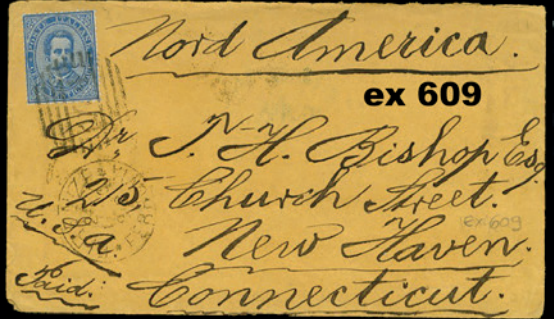 POSTE ITALIANE
Nord America.
ex 609
Dr. T. H. Bishop Esq.
215 Church Street.
U.S.A.
New Haven.
ex 609
Paid.
Connecticut.